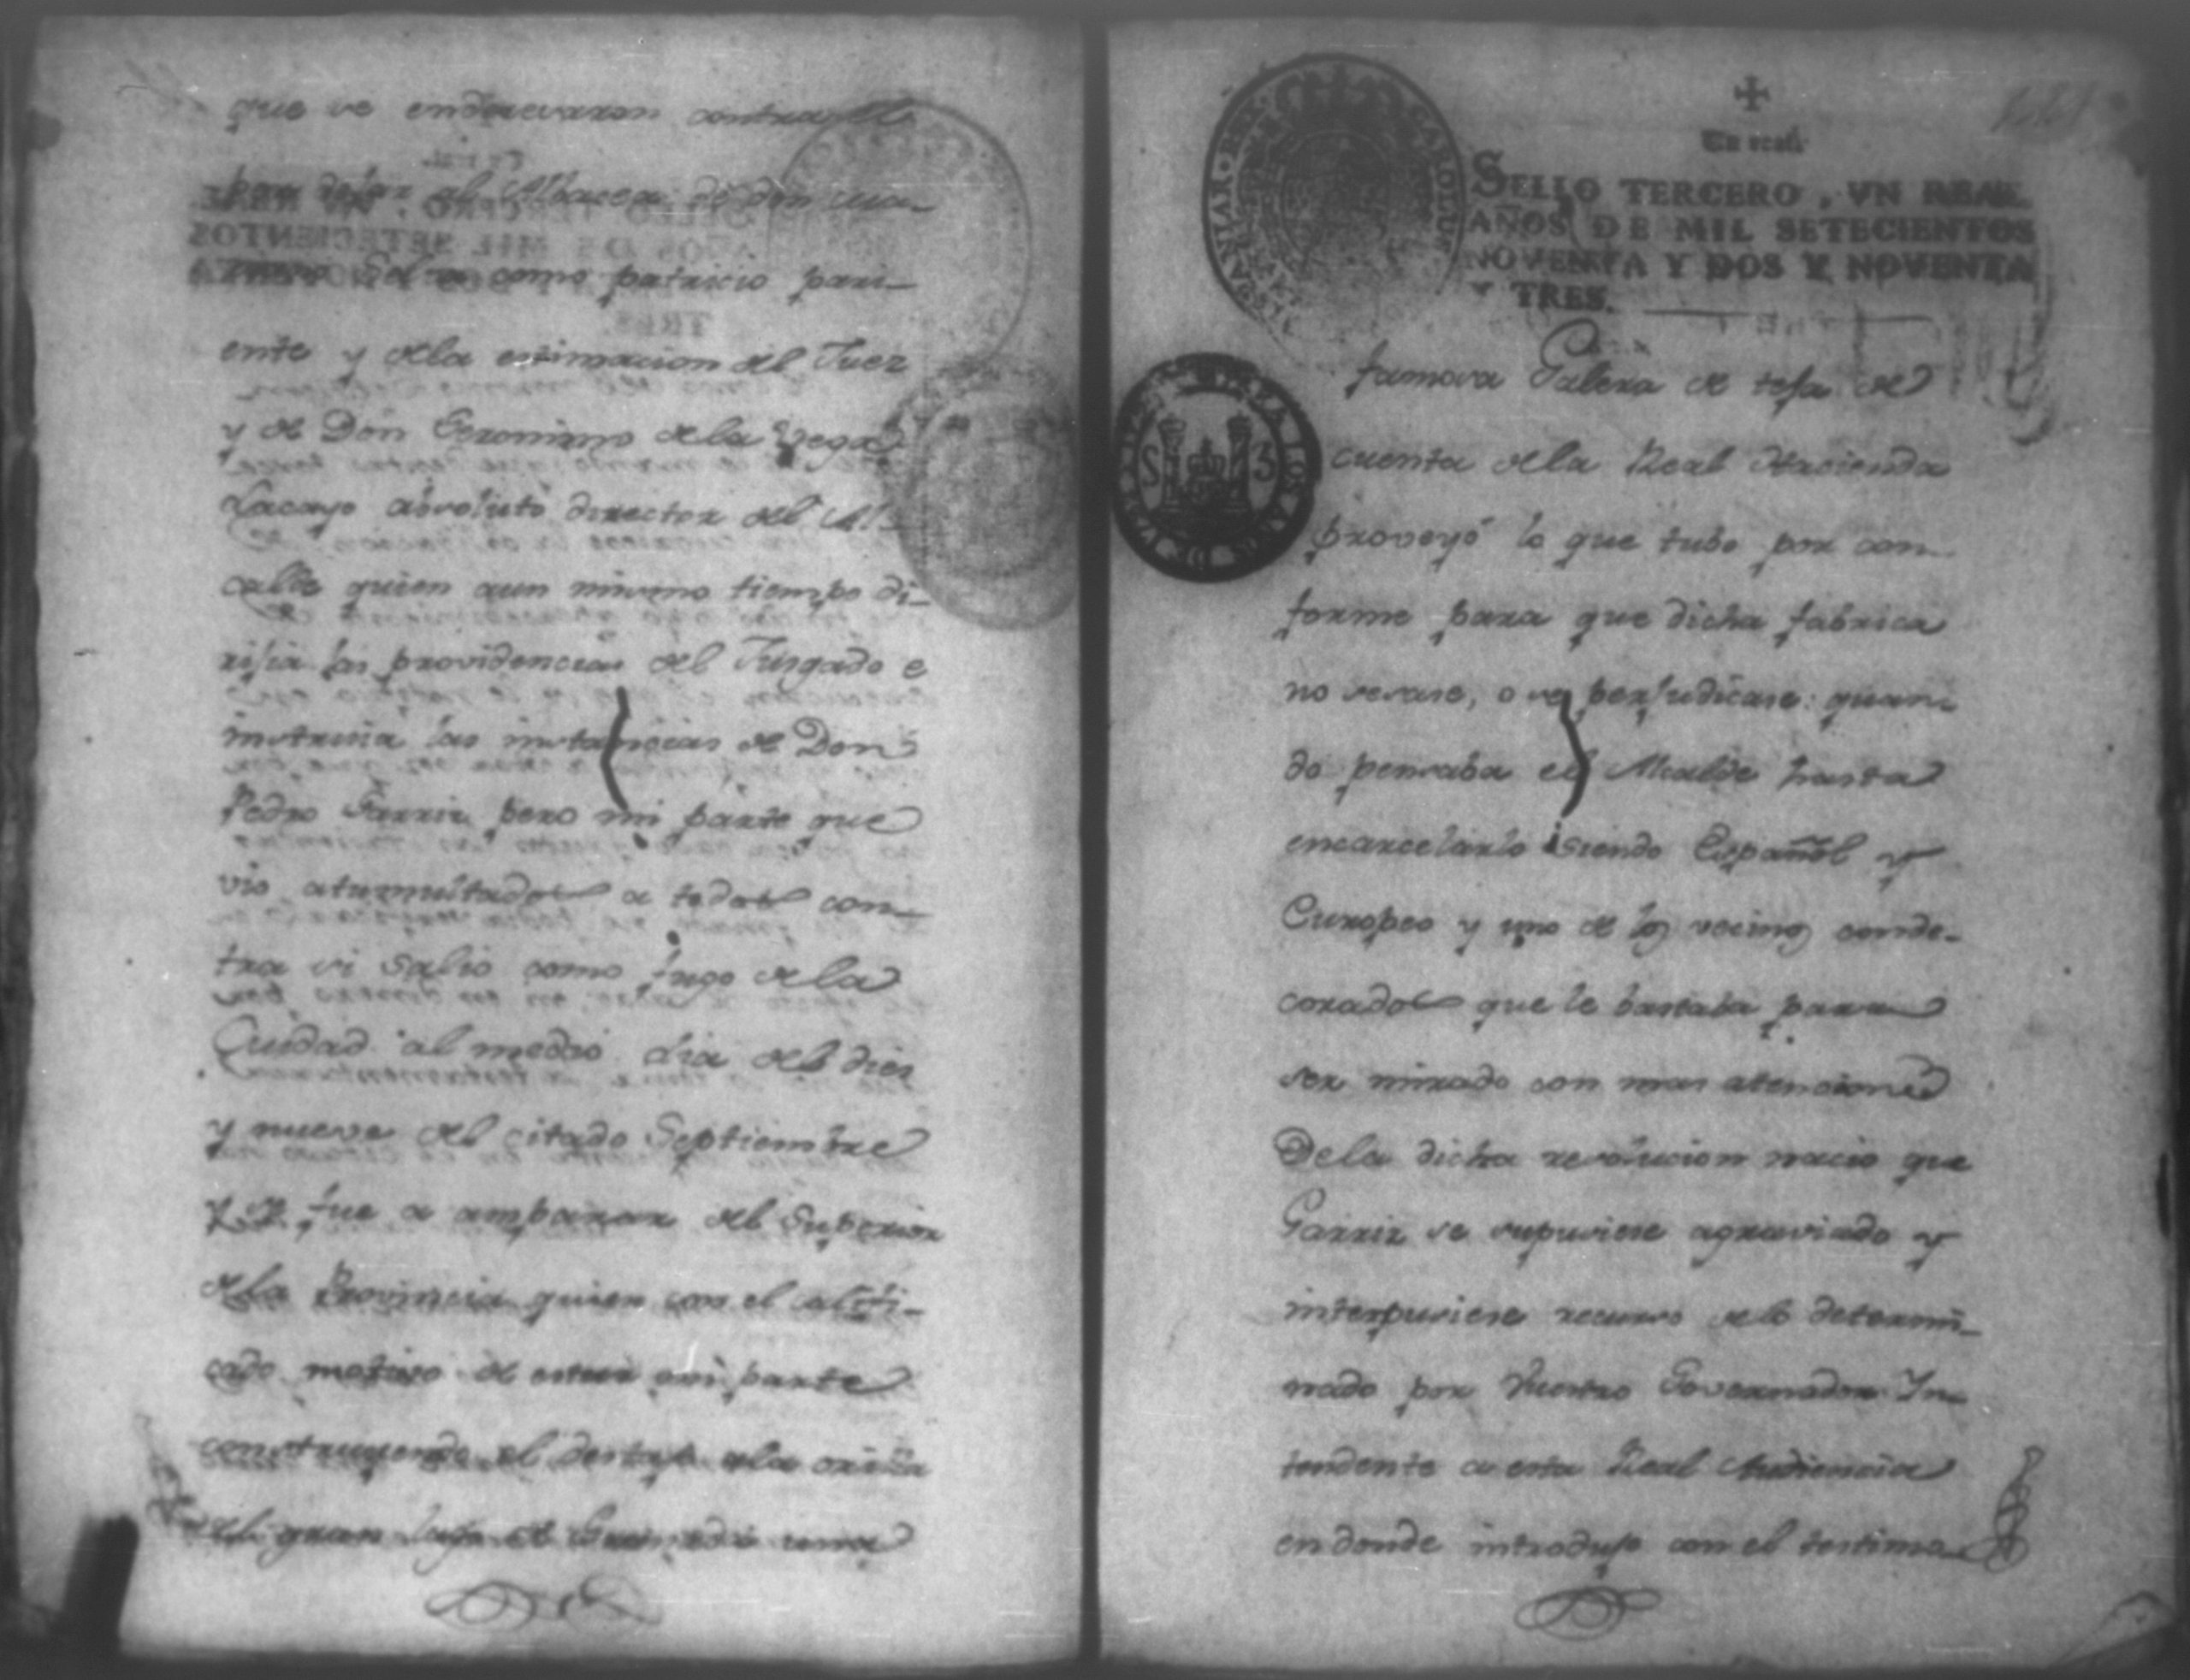 que se enderezaron contra el
para dejar al Albacea de don Ma-
como patricio pari-
ente y dela estimacion del Juez
y de Don Geronimo dela Vega
Lacayo absoluto director del Al-
calde quien aun mismo tiempo di-
rijia las providencias del Juzgado e
instruia las instancias de Don
Pedro Garriz pero mi parte que
vio atumultados a todos con-
tra si salio como fugo dela
Ciudad al medio dia del dies
y nueve del citado Septiembre
y se fue a amparar del Superior
dela Provincia quien con el
cado motivo de estar mi parte
construyendo el dela orilla
del gran lago de una
Un real
SELLO TERCERO, VN REAL
AÑOS DE MIL SETECIENTOS
NOVENTA Y DOS Y NOVENTA
Y TRES.
CAROLUS
famosa Galera de teja de
S 3
cuenta dela Real Hacienda
proveyó lo que tubo por con-
forme para que dicha fabrica
no sesase, o se perjudicase: quan-
do pensaba el Alcalde hasta
encarcelarlo siendo Español y
Europeo y uno de los vecinos conde-
corados que le bastaba para
ser mirado con mas atenciones
Dela dicha revolucion nacio que
Garriz se supusiese agraviado y
interpusiese recurso delo determi-
nado por Vuestro Governador In-
tendente a esta Real Audiencia
en donde introdujo con el testimo-